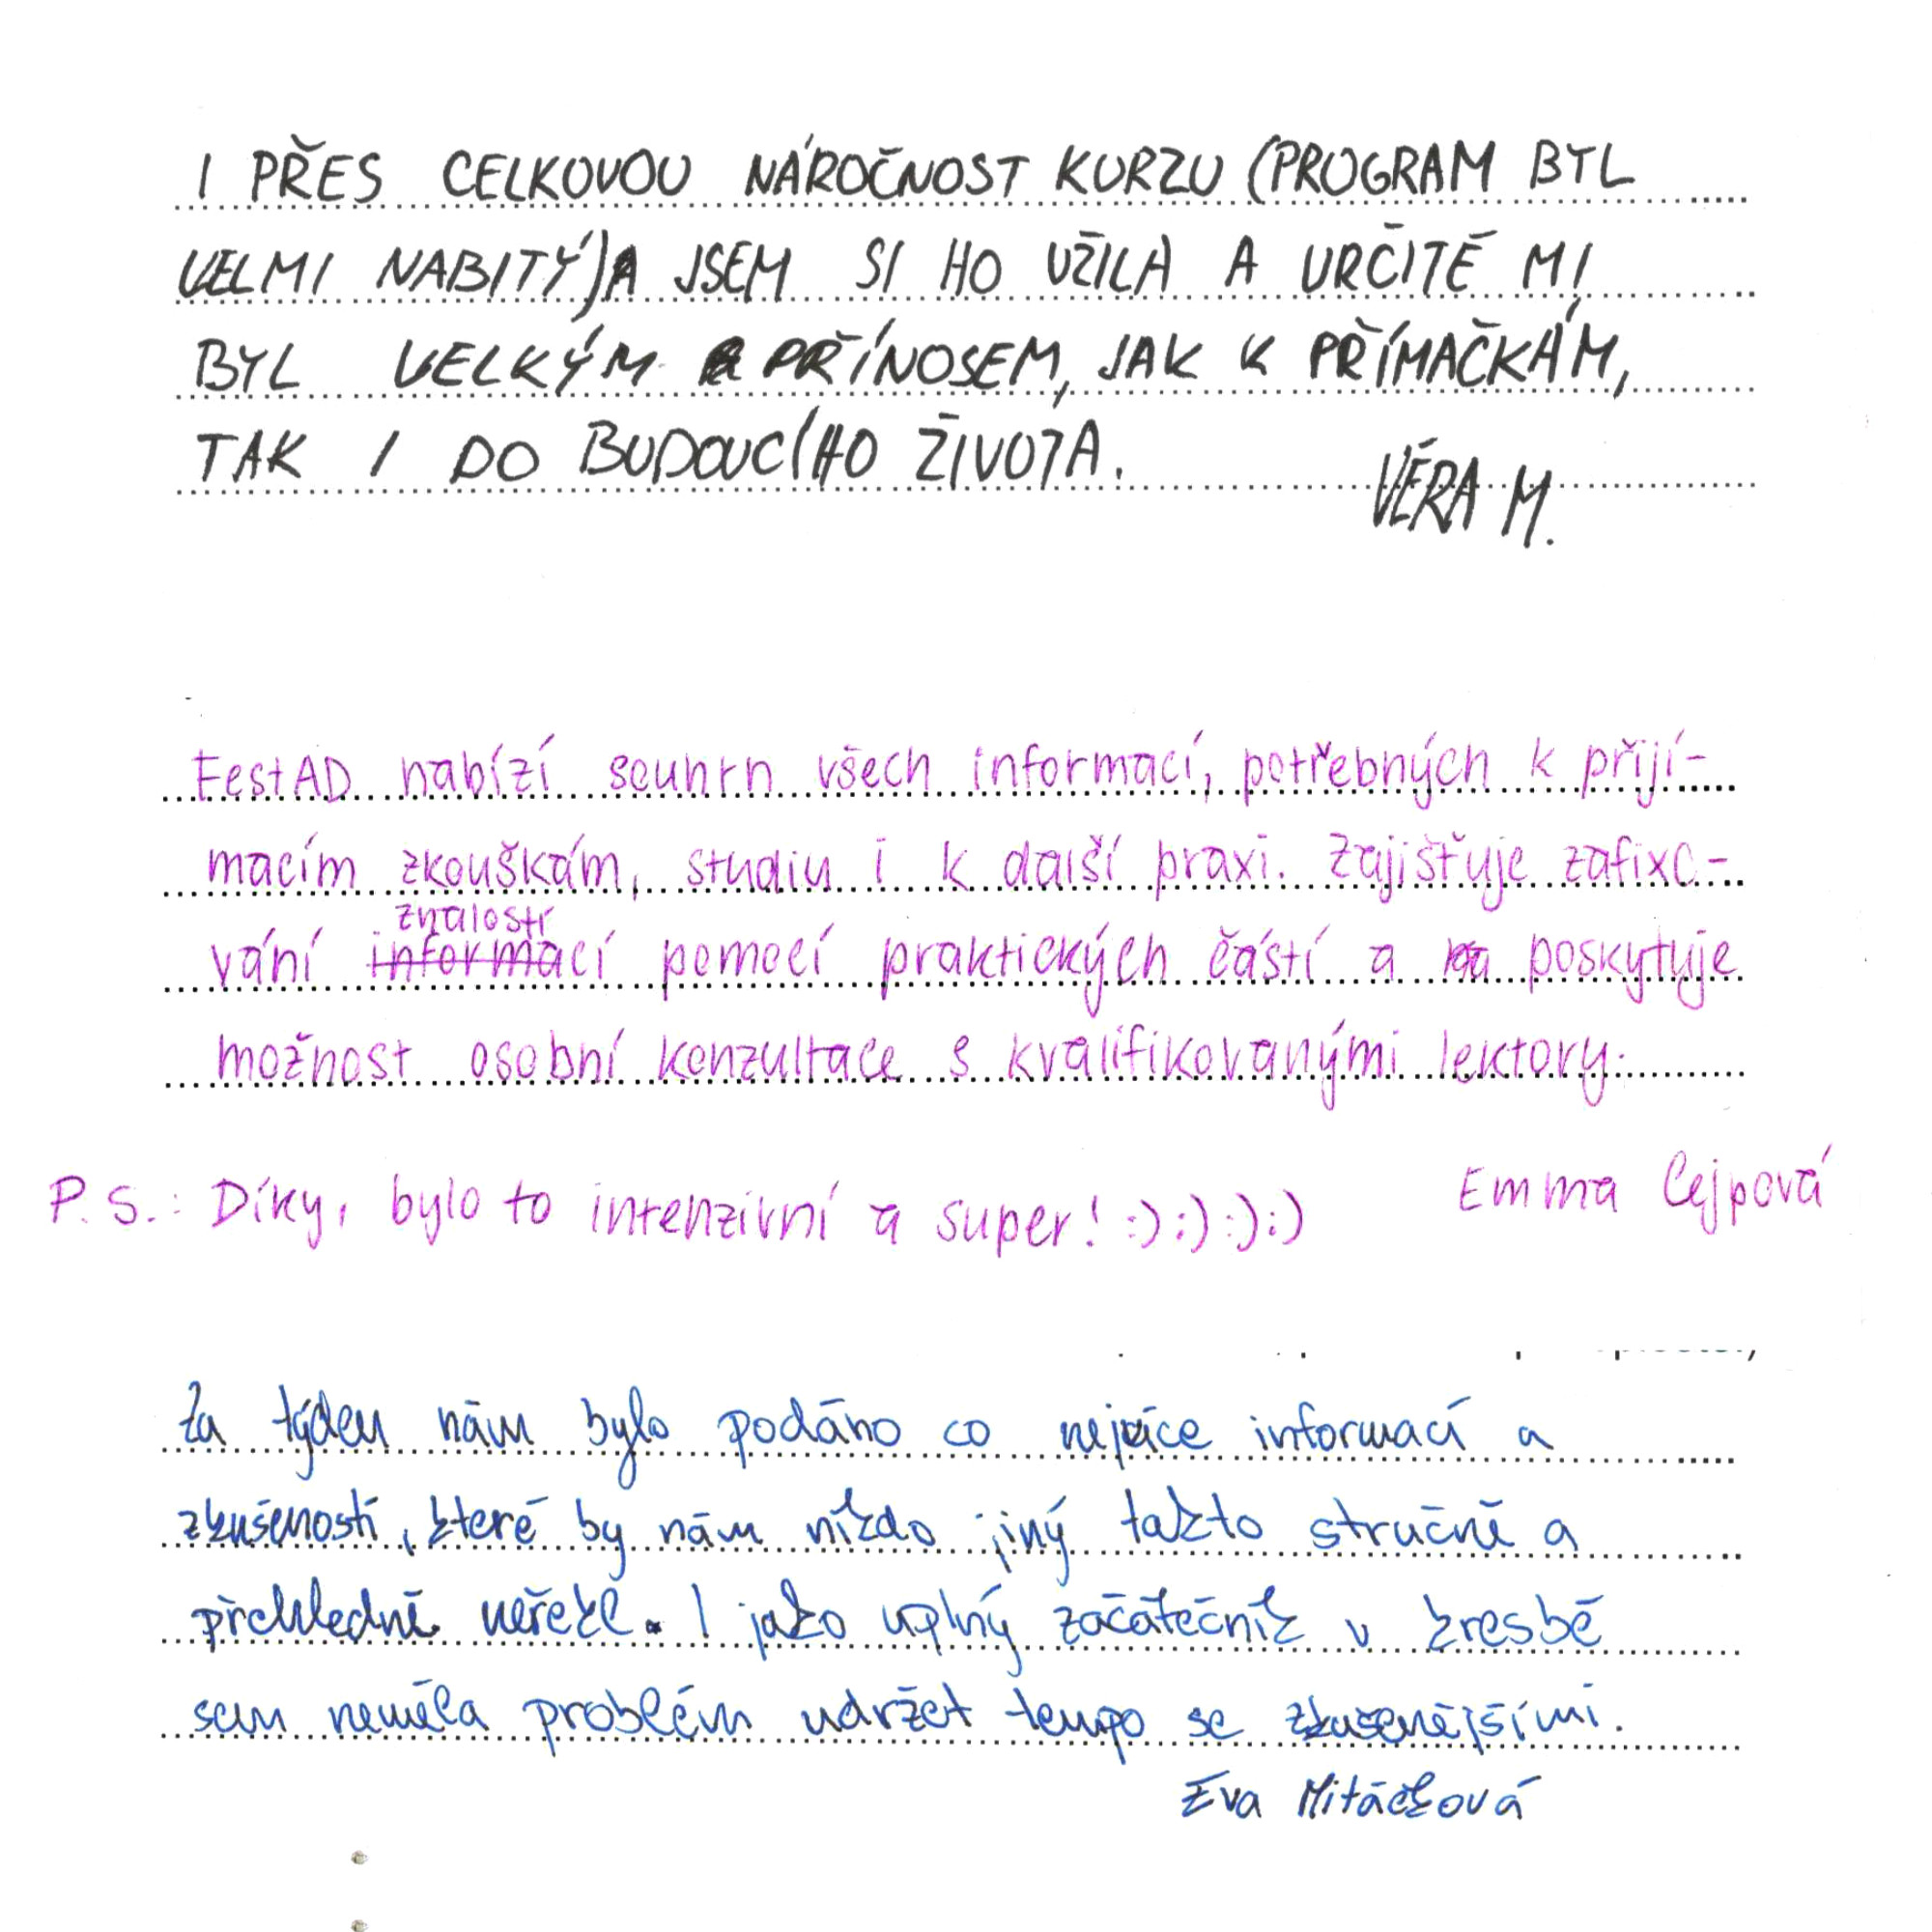 I PŘES CELKOVOU NÁROČNOST KURZU (PROGRAM BYL
VELMI NABITÝ)A JSEM SI HO UŽILA A URČITĚ MI
BYL VELKÝM PŘÍNOSEM, JAK K PŘÍMAČKÁM,
TAK I DO BUDOUCÍHO ŽIVOTA.
VĚRA M.
FestAD nabízí souhrn všech informací, potřebných k přijí-
macím zkouškám, studiu i k další praxi. Zajišťuje zafixo-
znalostí
vání informací pomocí praktických částí a poskytuje
možnost osobní konzultace s kvalifikovanými lektory.
P.S.: Díky, bylo to intenzivní a super! :) :) :) :)
Emma Cejpová
Za týden nám bylo podáno co nejvíce informací a
zkušeností, které by nám nikdo jiný takto stručně a
přehledně neřekl. I jako uplný začátečník v kresbě
sem neměla problém udržet tempo se zkušenějšími.
Eva Mitáčková